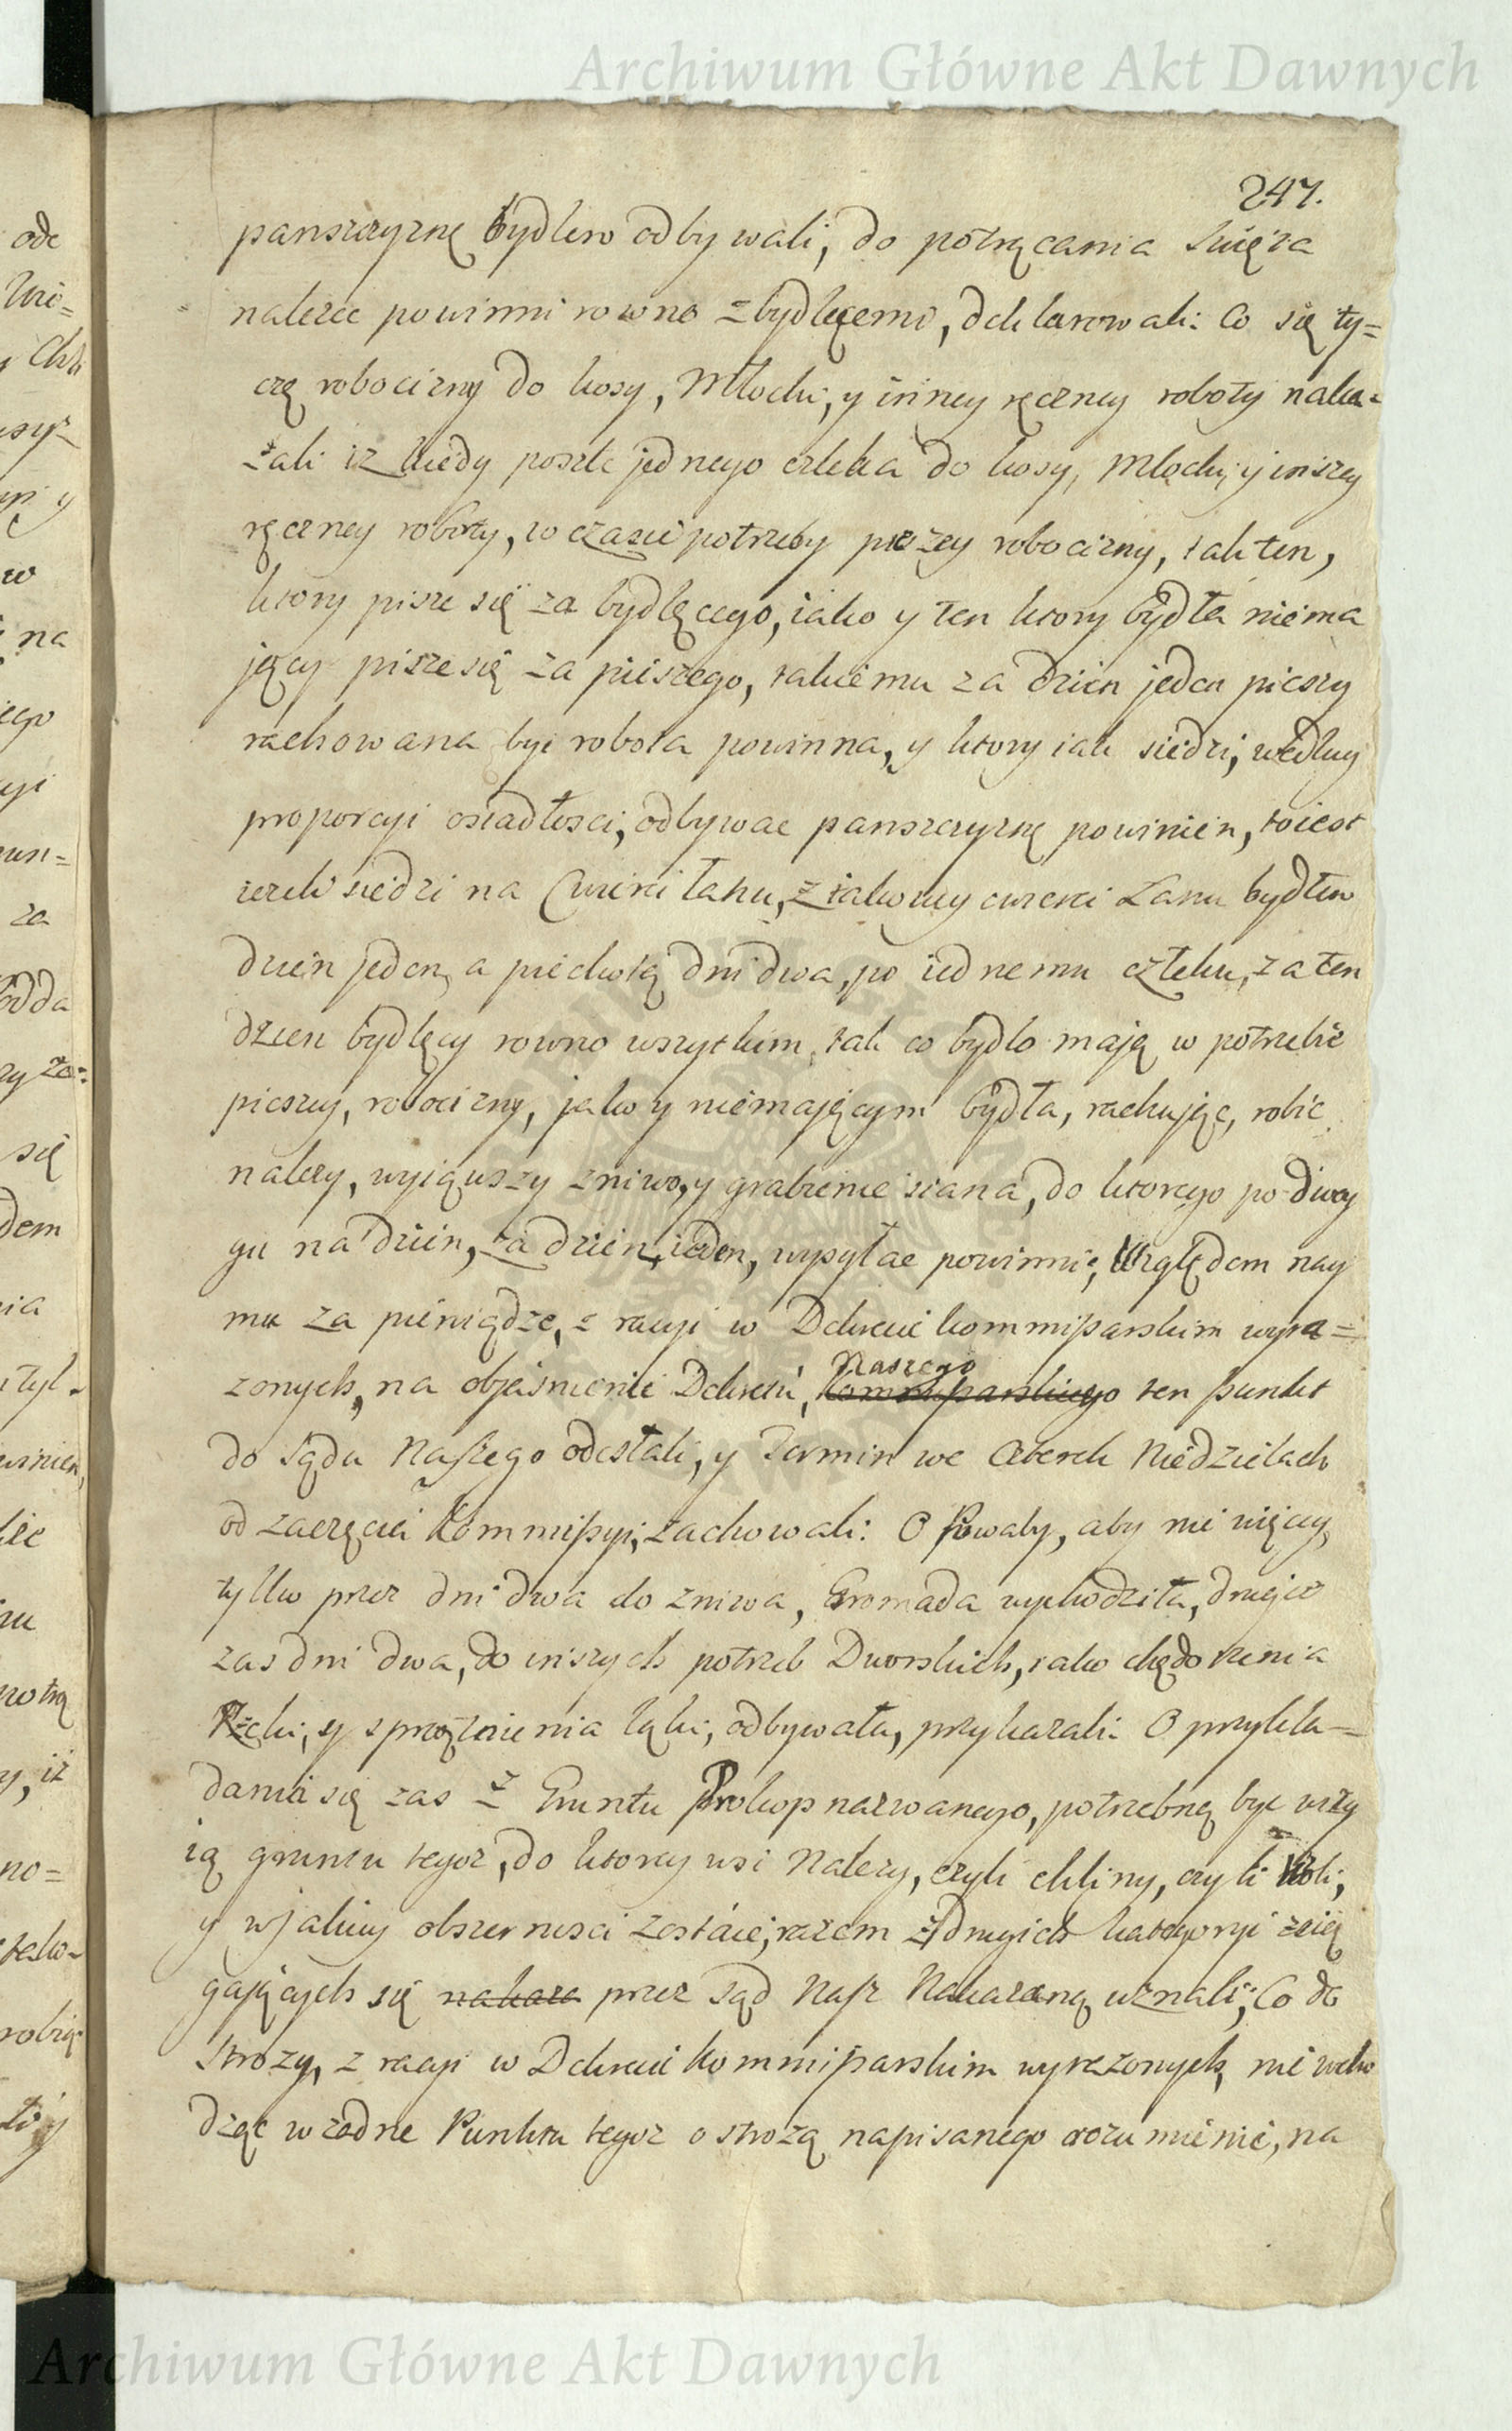 Archiwum Główne Akt Dawnych
247.
panszczyznę bydłem odbywali, do potrącania Swięta
nalezec powinni rowno z bydlęcemi, deklarowali: Co się ty=
czę robocizny do kosy, Młocki, y inney ręczney roboty naka=
zali iz kiedy poszle jednego człeka do kosy, Młocki, y inszey
ręczney roboty, w czasie potrzeby pieszey robocizny, tak ten,
ktory pisze się za bydlęcego, iako y ten ktory bydła niema
jący pisze się za pieszego, takiemu za dzien jeden pieszy
rachowana byc robota powinna, y ktory iak siedzi, według
proporcyi osiadłosci, odbywac panszczyznę powinien, to iest
iezeli siedzi na Cwierci łanu, z takowey cwierci Łanu bydłem
dzien jeden, a piechotą dni dwa, po iednemu człeku, za ten
dzien bydlęcy rowno wszytkim, tak co bydło mają w potrzebie
pieszey, robocizny, jako y niemającym bydła, rachując, robic
nalezy, wyiąwszy zniwo, y grabienie siana, do ktorego po dwoy
gu na dzien, za dzien ieden, wysyłac powinni, Względem nay
mu za pieniądze, z racyi w Dekrecie kommissarskim wyra=
zonych, na objasnienie Dekretu, kommissarskiego Naszego ten punkt
do Sądu Naszego odesłali, y Termin we Czterech Niedzielach
od zaczęcia Kommissyi, zachowali: O Powaby, aby nie więcey,
tylko przez dni dwa do zniwa, Gromada wychodziła, drugie
zas dni dwa, do inszych potrzeb Dworskich, iako chędozenia
Rzeki, y sprzątnienia łąki, odbywała, przykazali: O przykła=
dania się zas z Gruntu Prokop nazwanego, potrzebną byc wizy
ią gruntu tegoz, do ktorey wsi Nalezy, czyli chliny, czyli Woli,
y w jakiey obszernosci zostaie, razem z drugich kategoryi scią
gających się nakaza przez Sąd Nasz Nakazaną uznali; Co do
Strozy, z racyi w Dekrecie kommissarskim wyrazonych, nie wcho
dząc w zadne Punktu tegoz o strozą napisanego rozumienie, na
Archiwum Główne Akt Dawnych